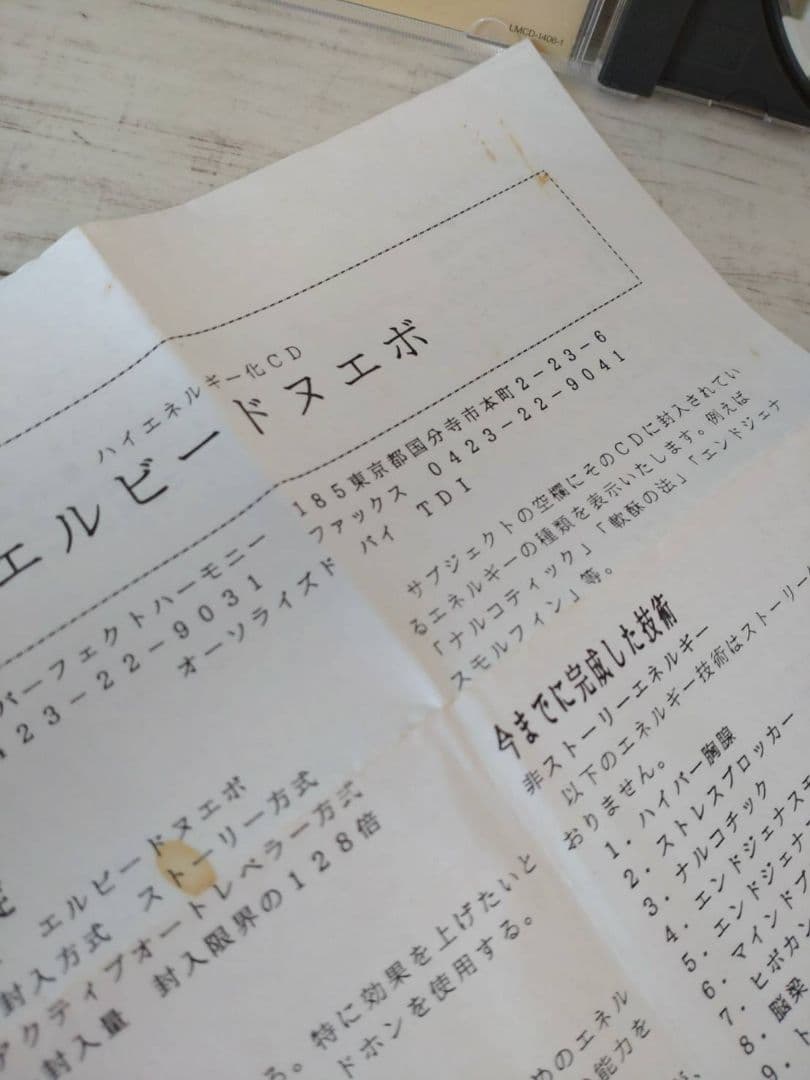 LMCD-1406-1
ハイエネルギー化CD
エルビードヌエボ
パーフェクトハーモニー
185東京都国分寺市本町2-23-6
423-22-9031
ファックス 0423-22-9041
オーソライズド バイ TDI
エルビードヌエボ
封入方式 ストーリー方式
アクティブオートレベラー方式
封入量 封入限界の128倍
る。特に効果を上げたいと
ドホンを使用する。
めのエネル
能力を
サブジェクトの空欄にそのCDに封入されてい
るエネルギーの種類を表示いたします。例えば
「ナルコティック」「軟酥の法」「エンドジェナ
スモルフィン」等。
今までに完成した技術
非ストーリーエネルギー
以下のエネルギー技術はストーリー
おりません。
1. ハイパー胸腺
2. ストレスブロッカー
3. ナルコチック
4. エンドジェナスモ
5. エンドジェナ
6. マインドブ
7. ヒポカン
8. 脳梁
9. ト